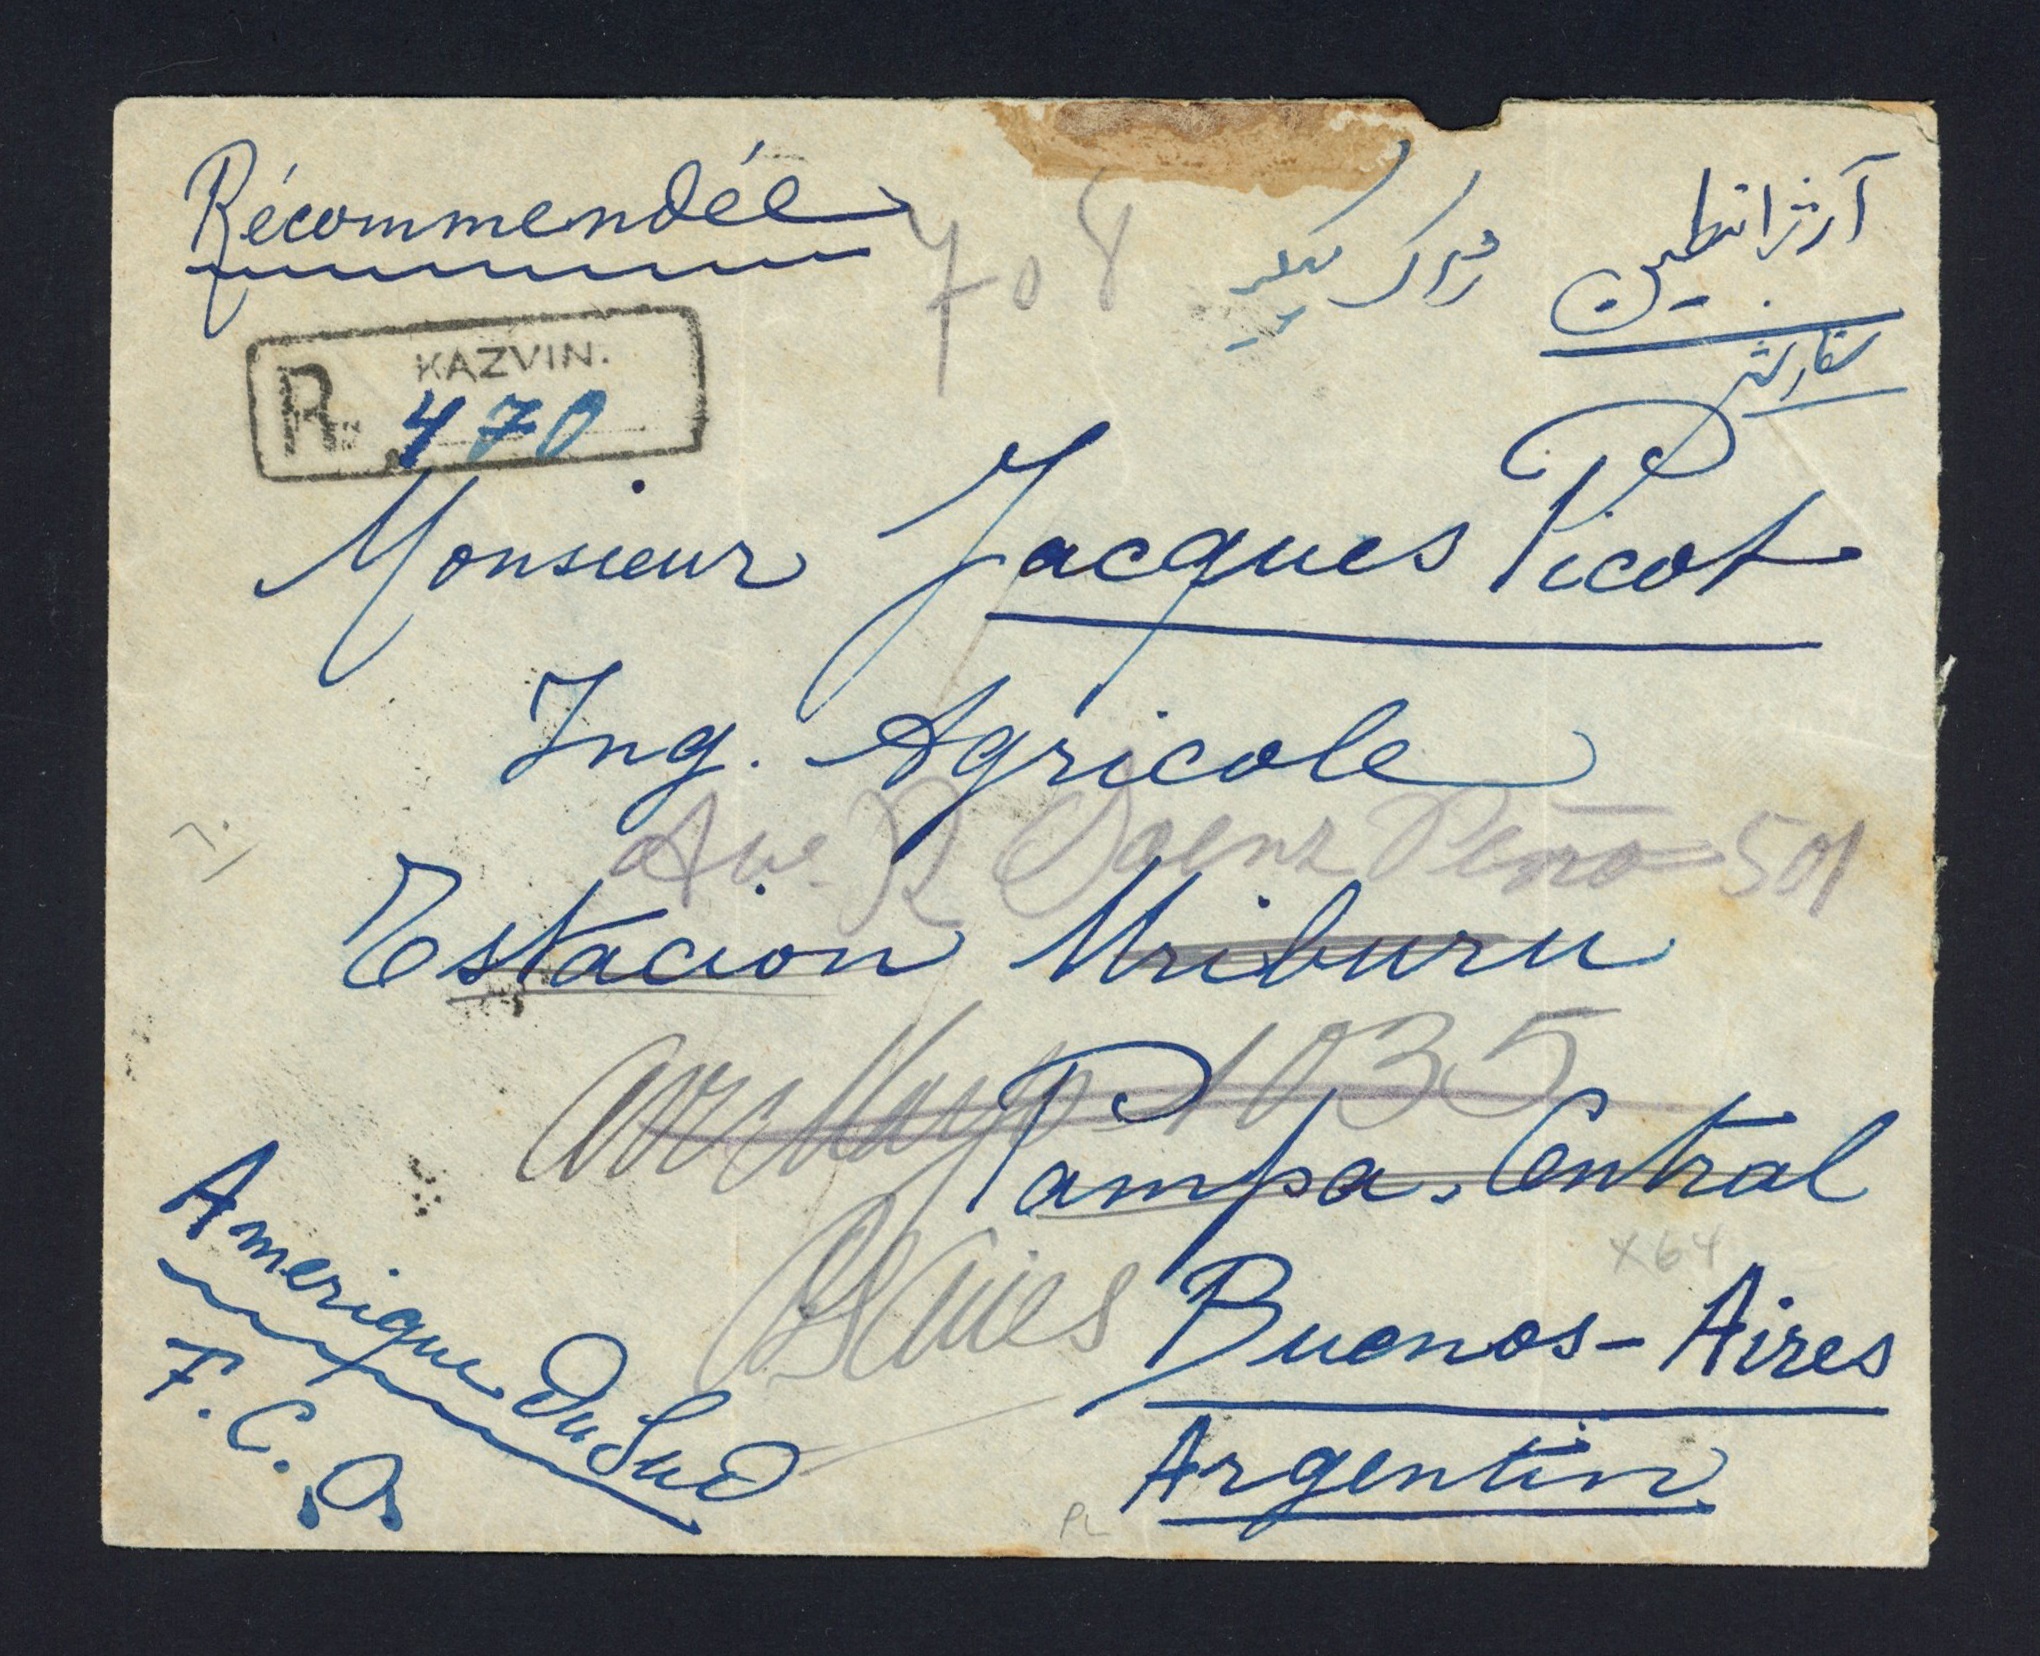 Récommendée
708
آرژانطین
ژاک پیکو
سفارشی
KAZVIN.
R 470
Monsieur Jacques Picot
Ing. Agricole
Ave. R Saenz Peña 501
Estacion Uriburu
1035
Pampa. Central
BAires
x64
Buenos-Aires
Argentin
Amerique Du Sud
F. C. O.
PL